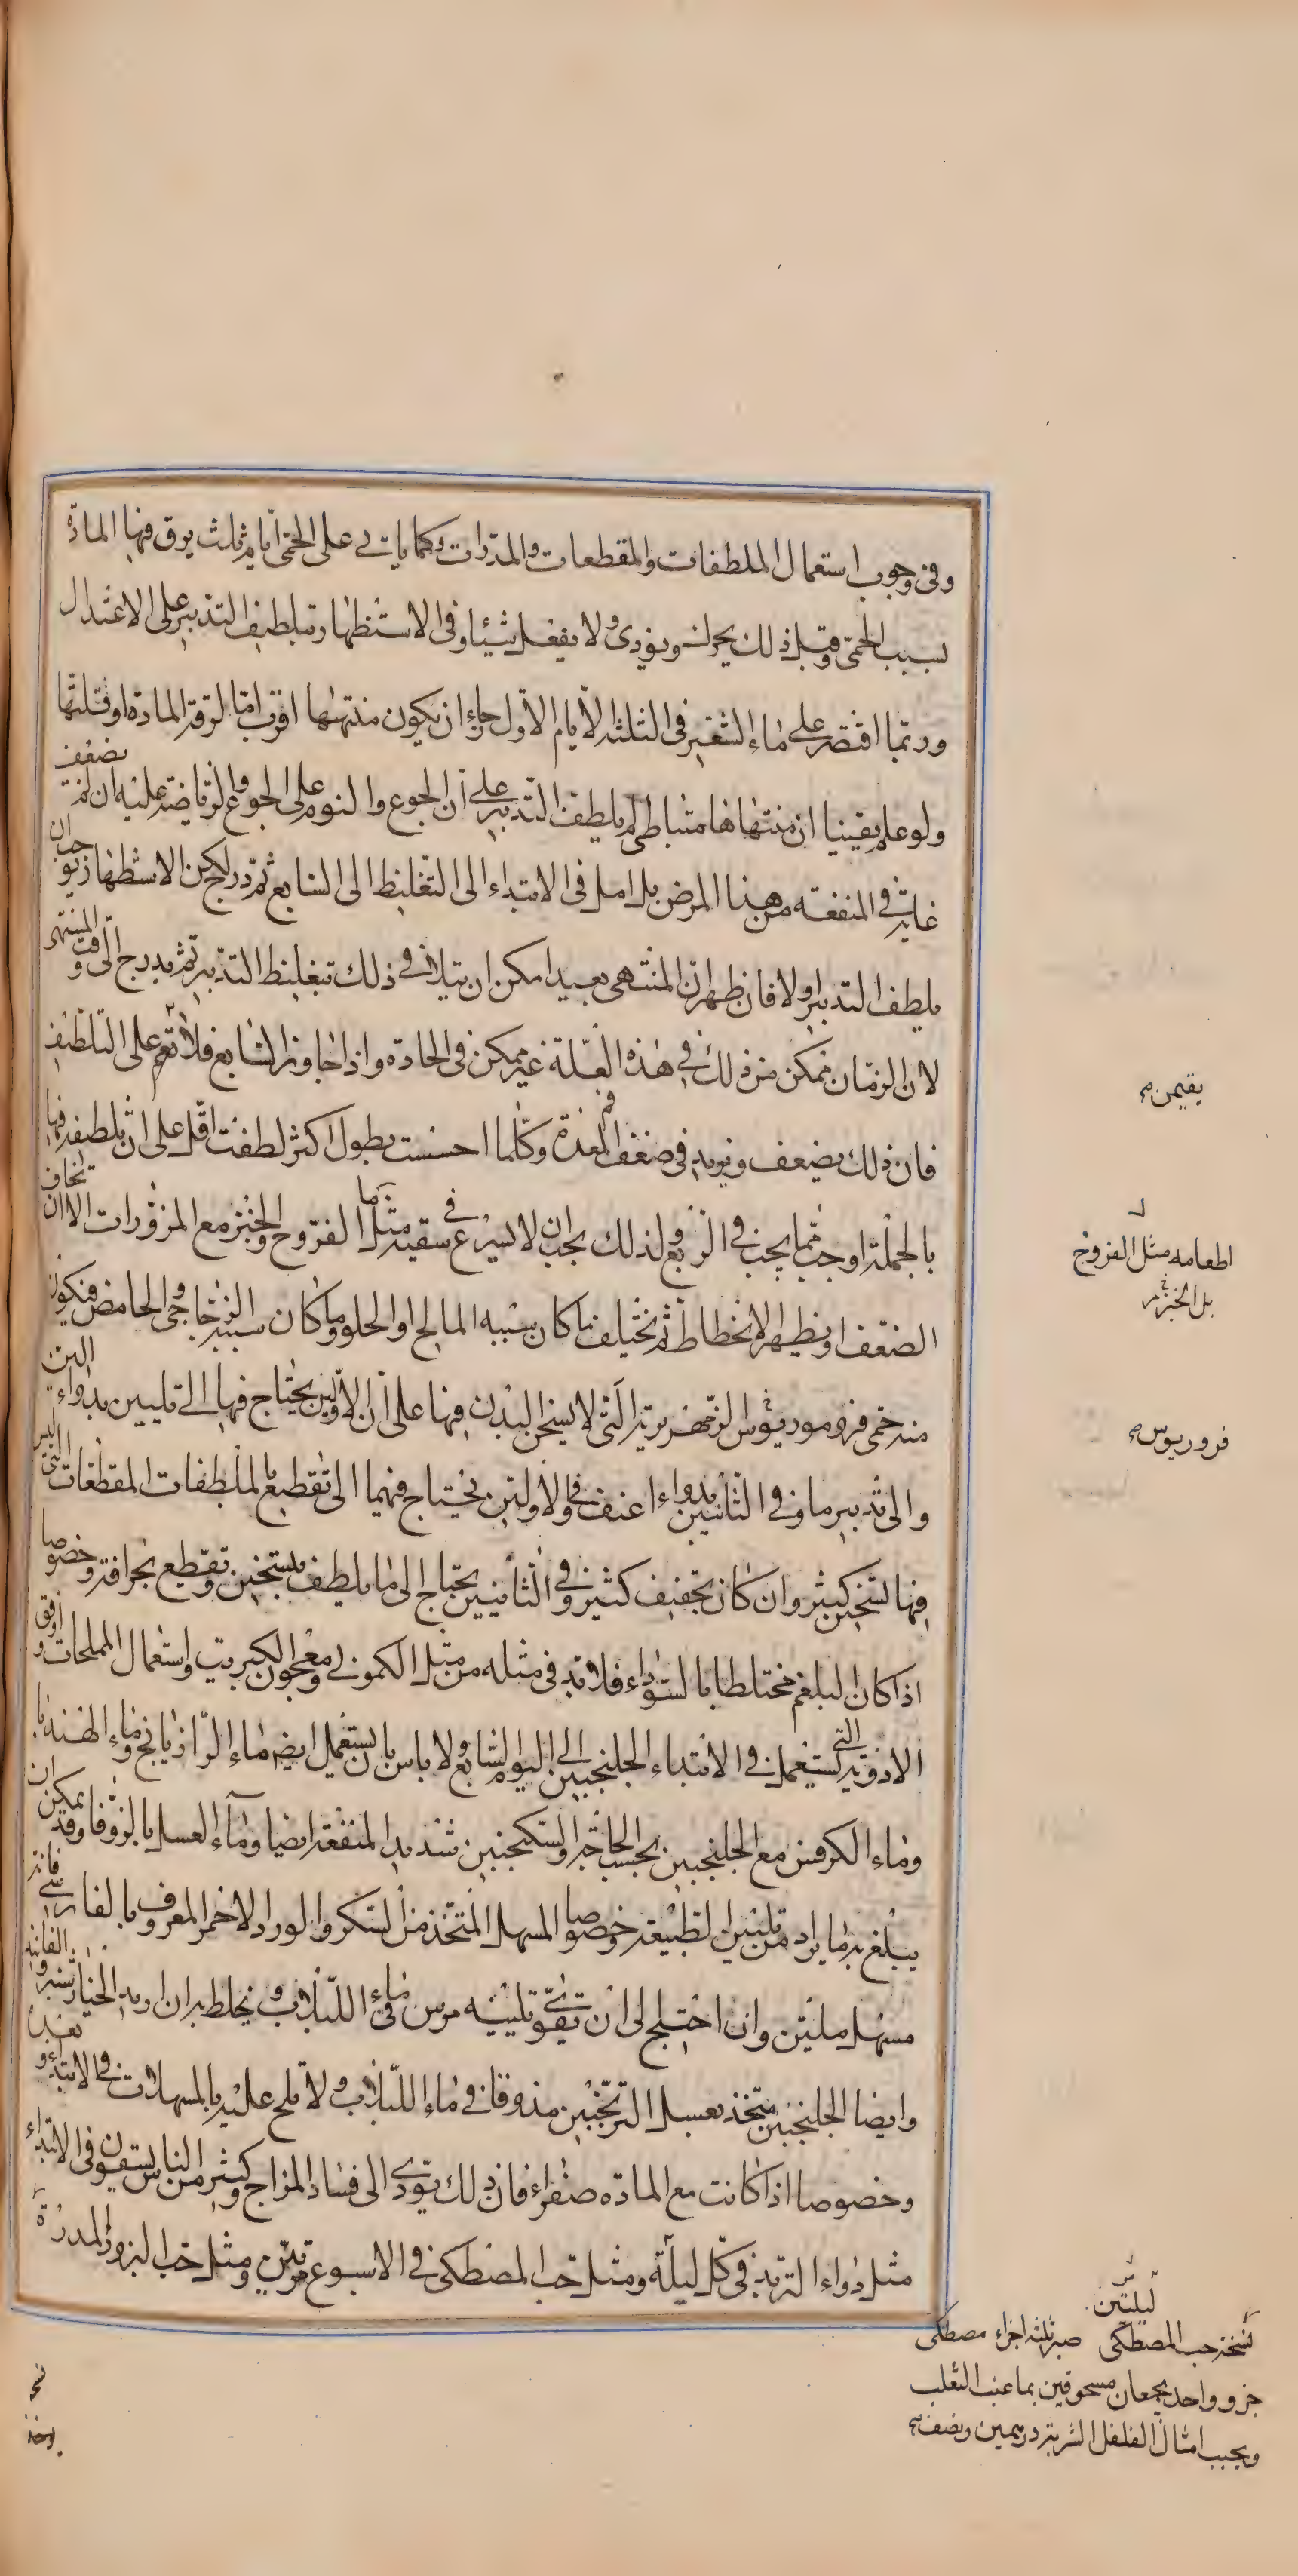 وفى وجوب استعمال الملطفات والمقطعات والمدرات وكما ياتى على الحمى ايام ثلث يرق فيها المادة
بسبب الحمى وقبل ذلك يحرك ويؤذى ولا يفعل شيئا وفى الاستظهار بتلطيف التدبير على الاعتدال
وربما اقتصر على ماء الشعير فى الثلثة الايام الاول رجاء ان يكون منتهىها اقرب اما لرقة المادة او قلتها
ولو علم يقينا ان منتهاها متباطى لم يلطف التدبير على ان الجوع والنوم على الجوع والرياضة عليه ان لم تضعف
غاية فى المنفعة من هذا المرض بل امل فى الابتداء الى التغليظ الى السابع ثم تدرج لكن الاستظهار يوجب ان
يلطف التدبير اولا فان ظهر ان المنتهى بعيدا مكن ان يتلافى ذلك بتغليظ التدبير ثم يدرج الى وقت المنتهى
لان الزمان ممكن من ذلك فى هذه العلة غير ممكن فى الحادة واذا جاوز السابع فلا تقم على التلطيف
فان ذلك يضعف ويزيد فى ضعف فم المعدة وكلما احسست بطول اكثر لطفت اقل على ان تلطيفه فيها
بالجملة اوجب مما يجب فى الربع ولذلك يجب ان لا يسرع فى سقيه مثل ماء الفروج والخبز مع المزورات الا ان تخاف
الضعف او يظهر الانحطاط ثم يختلف ما كان سببه المالح او الحلو وما كان سببه الزجاجى والحامض فيكون
منه حمى فرموديقوس الزمهريرية التى لا يسخن البدن فيها على ان الاولين يحتاج فيها الى تليين بدواء الين
والى تدبير ما وفى الثانيين بدواء اعنف وفى الاولين يحتاج فيهما الى تقطيع بالملطفات المقطعات التى ليس
فيها تسخين كثير وان كان تجفيف كثير وفى الثانيين يحتاج الى ما يلطف بتسخين وتقطيع بحرافة وخصوصا
اذا كان البلغم مختلطا بالسوداء فلا بد فى مثله من مثل الكمونى ومعجون الكبريت واستعمال المملحات واوفق
الادوية التى تستعمل فى الابتداء الجلنجبين الى اليوم السابع ولا باس بان يستعمل ايضا ماء الرازيانج وماء الهندبا
وماء الكرفس مع الجلنجبين بحسب الحاجة والسكنجبين شديد المنفعة ايضا وماء العسل بالزوفا وقد يمكن ان
يبلغ به ما يراد من تليين الطبيعة وخصوصا المسهل المتخذ من السكر والورد الاحمر المعروف بالفارسى فانه
مسهل ملين وان احتيج الى ان تقوى تليينه مرس فى ماء اللبلاب ويخلط به ان اريد الخيارشنبر والفانيد
وايضا الجلنجبين متخذ بعسل الترنجبين مذوقا فى ماء اللبلاب ولا تلح عليه بالمسهلات فى الابتداء وبعده
وخصوصا اذا كانت مع المادة صفراء فان ذلك يؤدى الى فساد المزاج وكثير من الناس يسقون فى الابتداء
مثل دواء التربد فى كل ليلة ومثل حب المصطكى فى الاسبوع مرتين ومثل حب البزور المدرة
يقيمن
اطعامه مثل الفروج
بل الخبز
فروريوس
ليلتين
نسخة حب المصطكى صبر ثلثة اجزاء مصطكى
جزو واحد يجمعان مسحوقين بما عنب الثعلب
ويحبب امثال الفلفل الشربة درهمين ونصف